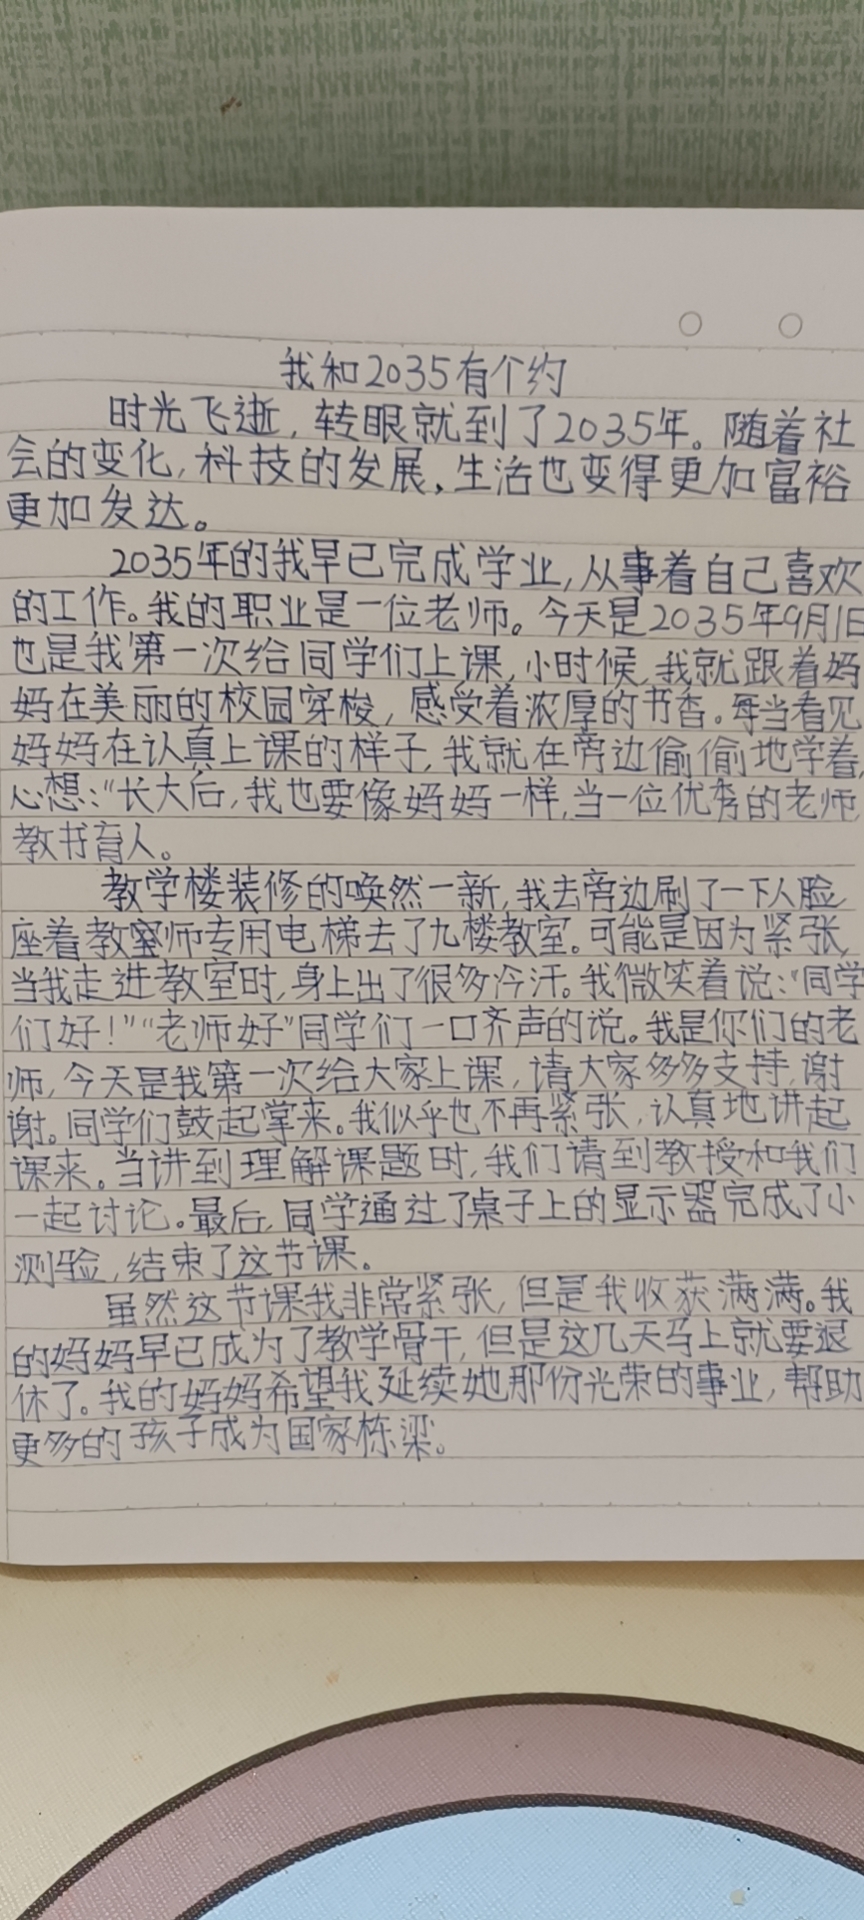 我和2035有个约
时光飞逝,转眼就到了2035年。随着社
会的变化,科技的发展,生活也变得更加富裕
更加发达。
2035年的我早已完成学业,从事着自己喜欢
的工作。我的职业是一位老师。今天是2035年9月1日
也是我第一次给同学们上课,小时候,我就跟着妈
妈在美丽的校园穿梭,感受着浓厚的书香。每当看见
妈妈在认真上课的样子,我就在旁边偷偷地学着,
心想:“长大后,我也要像妈妈一样,当一位优秀的老师,
教书育人。
教学楼装修的唤然一新,我去旁边刷了一下人脸,
座着教师专用电梯去了九楼教室。可能是因为紧张,
当我走进教室时,身上出了很多冷汗。我微笑着说:“同学
们好!”“老师好”同学们一口齐声的说。我是你们的老
师,今天是我第一次给大家上课,请大家多多支持,谢
谢。同学们鼓起掌来。我似乎也不再紧张,认真地讲起
课来。当讲到理解课题时,我们请到教授和我们
一起讨论。最后,同学通过了桌子上的显示器完成了小
测验,结束了这节课。
虽然这节课我非常紧张,但是我收获满满。我
的妈妈早已成为了教学骨干,但是这几天马上就要退
休了。我的妈妈希望我延续她那份光荣的事业,帮助
更多的孩子成为国家栋梁。